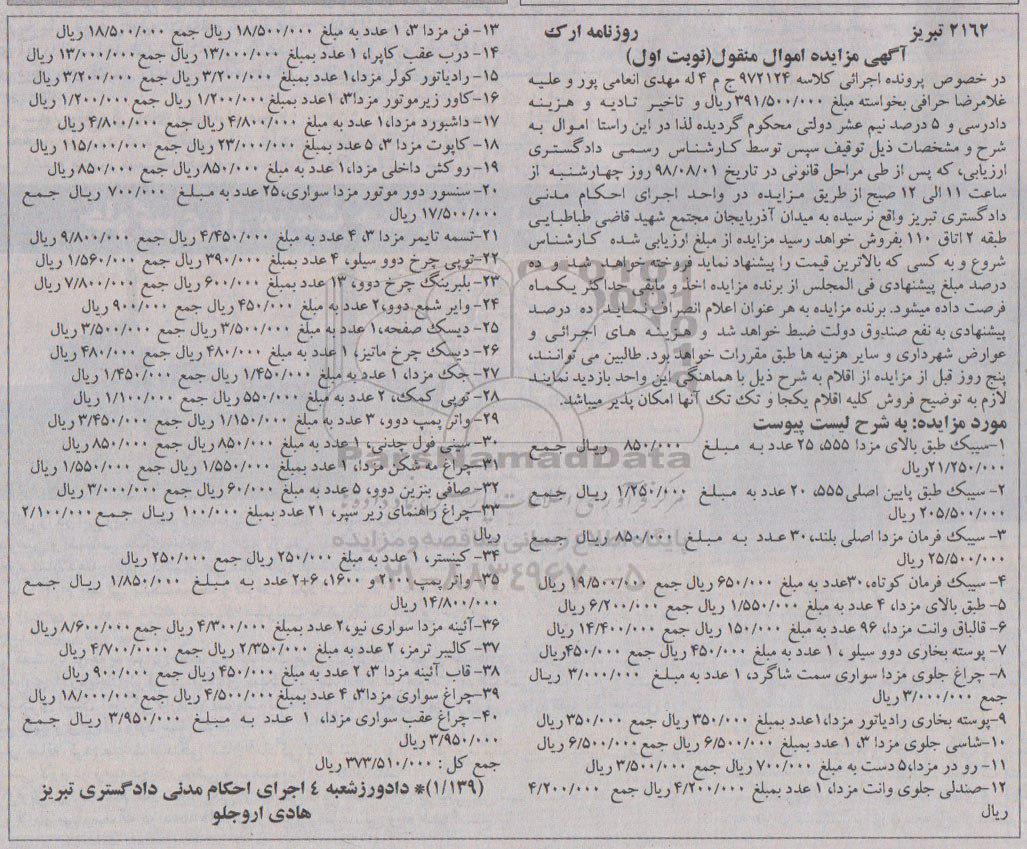 ۲۱۶۲ تبریز روزنامه ارک
آگهی مزایده اموال منقول(نوبت اول)
در خصوص پرونده اجرائی کلاسه ۹۷۲۱۲۴ ج م ۴ له مهدی انعامی پور و علیه
غلامرضا حرافی بخواسته مبلغ ۳۹۱/۵۰۰/۰۰۰ ریال و تاخیر تادیه و هزینه
دادرسی و ۵ درصد نیم عشر دولتی محکوم گردیده لذا در این راستا اموال به
شرح و مشخصات ذیل توقیف سپس توسط کارشناس رسمی دادگستری
ارزیابی، که پس از طی مراحل قانونی در تاریخ ۹۸/۰۸/۰۱ روز چهارشنبه از
ساعت ۱۱ الی ۱۲ صبح از طریق مزایده در واحد اجرای احکام مدنی
دادگستری تبریز واقع نرسیده به میدان آذربایجان مجتمع شهید قاضی طباطبایی
طبقه ۲ اتاق ۱۱۰ بفروش خواهد رسید مزایده از مبلغ ارزیابی شده کارشناس
شروع و به کسی که بالاترین قیمت را پیشنهاد نماید فروخته خواهد شد و ده
درصد مبلغ پیشنهادی فی المجلس از برنده مزایده اخذ و مابقی حداکثر یکماه
فرصت داده میشود. برنده مزایده به هر عنوان اعلام انصراف نماید ده درصد
پیشنهادی به نفع صندوق دولت ضبط خواهد شد و هزینه های اجرائی و
عوارض شهرداری و سایر هزنیه ها طبق مقررات خواهد بود. طالبین می توانند،
پنج روز قبل از مزایده از اقلام به شرح ذیل با هماهنگی این واحد بازدید نمایند
لازم به توضیح فروش کلیه اقلام یکجا و تک تک آنها امکان پذیر میباشد.
مورد مزایده: به شرح لیست پیوست
۱-سیبک طبق بالای مزدا ۵۵۵، ۲۵ عدد به مبلغ ۸۵۰/۰۰۰ ریال جمع
۲۱/۲۵۰/۰۰۰ریال
۲- سیبک طبق پایین اصلی ۵۵۵، ۲۰ عدد به مبلغ ۱/۲۵۰/۰۰۰ ریال جمع
۲۰۵/۵۰۰/۰۰۰ ریال
۳- سیبک فرمان مزدا اصلی بلند، ۳۰ عدد به مبلغ ۸۵۰/۰۰۰ ریال جمع
۲۵/۵۰۰/۰۰۰ ریال
۴- سیبک فرمان کوتاه، ۳۰عدد به مبلغ ۶۵۰/۰۰۰ ریال جمع ۱۹/۵۰۰/۰۰۰ ریال
۵- طبق بالای مزدا، ۴ عدد به مبلغ ۱/۵۵۰/۰۰۰ ریال جمع ۶/۲۰۰/۰۰۰ ریال
۶- قالپاق وانت مزدا، ۹۶ عدد به مبلغ ۱۵۰/۰۰۰ ریال جمع ۱۴/۴۰۰/۰۰۰ ریال
۷- پوسته بخاری دوو سیلو ، ۱ عدد به مبلغ ۴۵۰/۰۰۰ ریال جمع ۴۵۰/۰۰۰ریال
۸- چراغ جلوی مزدا سواری سمت شاگرد، ۱ عدد به مبلغ ۳/۰۰۰/۰۰۰ ریال
جمع ۳/۰۰۰/۰۰۰ ریال
۹-پوسته بخاری رادیاتور مزدا، ۱عدد بمبلغ ۳۵۰/۰۰۰ ریال جمع ۳۵۰/۰۰۰ ریال
۱۰-شاسی جلوی مزدا ۳، ۱ عدد بمبلغ ۶/۵۰۰/۰۰۰ ریال جمع ۶/۵۰۰/۰۰۰ ریال
۱۱- رو در مزدا،۵ دست به مبلغ ۷۰۰/۰۰۰ ریال جمع ۳/۵۰۰/۰۰۰ ریال
۱۲-صندلی جلوی وانت مزدا، ۱ عدد بمبلغ ۴/۲۰۰/۰۰۰ ریال جمع ۴/۲۰۰/۰۰۰
ریال
۱۳- فن مزدا ۳، ۱ عدد به مبلغ ۱۸/۵۰۰/۰۰۰ ریال جمع ۱۸/۵۰۰/۰۰۰ ریال
۱۴- درب عقب کاپرا، ۱ عدد به مبلغ ۱۳/۰۰۰/۰۰۰ ریال جمع ۱۳/۰۰۰/۰۰۰ ریال
۱۵- رادیاتور کولر مزدا، ۱ عدد بمبلغ ۳/۲۰۰/۰۰۰ ریال جمع ۳/۲۰۰/۰۰۰ ریال
۱۶-کاور زیرموتور مزدا۳، ۱عدد بمبلغ ۱/۲۰۰/۰۰۰ ریال جمع۱/۲۰۰/۰۰۰ ریال
۱۷- داشبورد مزدا، ۱ عدد به مبلغ ۴/۸۰۰/۰۰۰ ریال جمع ۴/۸۰۰/۰۰۰ ریال
۱۸- کاپوت مزدا ۳، ۵ عدد بمبلغ ۲۳/۰۰۰/۰۰۰ ریال جمع ۱۱۵/۰۰۰/۰۰۰ ریال
۱۹- روکش داخلی مزدا، ۱ عدد به مبلغ ۸۵۰/۰۰۰ ریال جمع ۸۵۰/۰۰۰ ریال
۲۰- سنسور دور موتور مزدا سواری، ۲۵ عدد به مبلغ ۷۰۰/۰۰۰ ریال جمع
۱۷/۵۰۰/۰۰۰ ریال
۲۱-تسمه تایمر مزدا ۳، ۴ عدد به مبلغ ۴/۴۵۰/۰۰۰ ریال جمع ۹/۸۰۰/۰۰۰ ریال
۲۲-توپی چرخ دوو سیلو، ۴ عدد بمبلغ ۳۹۰/۰۰۰ ریال جمع ۱/۵۶۰/۰۰۰ ریال
۲۳- بلبرینگ چرخ دوو، ۱۳ عدد بمبلغ ۶۰۰/۰۰۰ ریال جمع ۷/۸۰۰/۰۰۰ ریال
۲۴- وایر شمع دوو، ۲ عدد به مبلغ ۴۵۰/۰۰۰ ریال جمع ۹۰۰/۰۰۰ ریال
۲۵- دیسک صفحه، ۱ عدد به مبلغ ۳/۵۰۰/۰۰۰ ریال جمع ۳/۵۰۰/۰۰۰ ریال
۲۶- دیسک چرخ ماتیز، ۱ عدد به مبلغ ۴۸۰/۰۰۰ ریال جمع ۴۸۰/۰۰۰ ریال
۲۷- جک مزدا، ۱ عدد به مبلغ ۱/۴۵۰/۰۰۰ ریال جمع ۱/۴۵۰/۰۰۰ ریال
۲۸- توپی کمک، ۲ عدد به مبلغ ۵۵۰/۰۰۰ ریال جمع ۱/۱۰۰/۰۰۰ ریال
۲۹- واتر پمپ دوو، ۳ عدد به مبلغ ۱/۱۵۰/۰۰۰ ریال جمع ۳/۴۵۰/۰۰۰ ریال
۳۰- سینی فول چدنی، ۱ عدد به مبلغ ۸۵۰/۰۰۰ ریال جمع ۸۵۰/۰۰۰ ریال
۳۱-چراغ مه شکن مزدا، ۱ عدد بمبلغ ۱/۵۵۰/۰۰۰ ریال جمع ۱/۵۵۰/۰۰۰ ریال
۳۲-صافی بنزین دوو، ۵ عدد به مبلغ ۶۰/۰۰۰ ریال جمع ۳/۰۰۰/۰۰۰ ریال
۳۳-چراغ راهنمای زیر سپر، ۲۱ عدد بمبلغ ۱۰۰/۰۰۰ ریال جمع ۲/۱۰۰/۰۰۰
ریال
۳۴- کنیستر، ۱ عدد به مبلغ ۲۵۰/۰۰۰ ریال جمع ۲۵۰/۰۰۰ ریال
۳۵- واتر پمپ ۲۰۰۱ و ۱۶۰۰، ۶+۲ عدد به مبلغ ۱/۸۵۰/۰۰۰ ریال جمع
۱۴/۸۰۰/۰۰۰ ریال
۳۶-آئینه مزدا سواری نیو، ۲ عدد بمبلغ ۴/۳۰۰/۰۰۰ ریال جمع ۸/۶۰۰/۰۰۰ ریال
۳۷- کالیبر ترمز، ۲ عدد به مبلغ ۲/۳۵۰/۰۰۰ ریال جمع ۴/۷۰۰/۰۰۰۰ ریال
۳۸- قاب آئینه مزدا ۳، ۲ عدد به مبلغ ۴۵۰/۰۰۰ ریال جمع ۹۰۰/۰۰۰ ریال
۳۹-چراغ سواری مزدا۳، ۴ عدد بمبلغ ۴/۵۰۰/۰۰۰ ریال جمع ۱۸/۰۰۰/۰۰۰ ریال
۴۰- چراغ عقب سواری مزدا، ۱ عدد به مبلغ ۳/۹۵۰/۰۰۰ ریال جمع
۳/۹۵۰/۰۰۰ ریال
جمع کل : ۳۷۳/۵۱۰/۰۰۰ ریال
(۱/۱۳۹)* دادورزشعبه ٤ اجرای احکام مدنی دادگستری تبریز
هادی اروجلو
ParsNamadData
پایگاه اطلاع رسانی مناقصه و مزایده